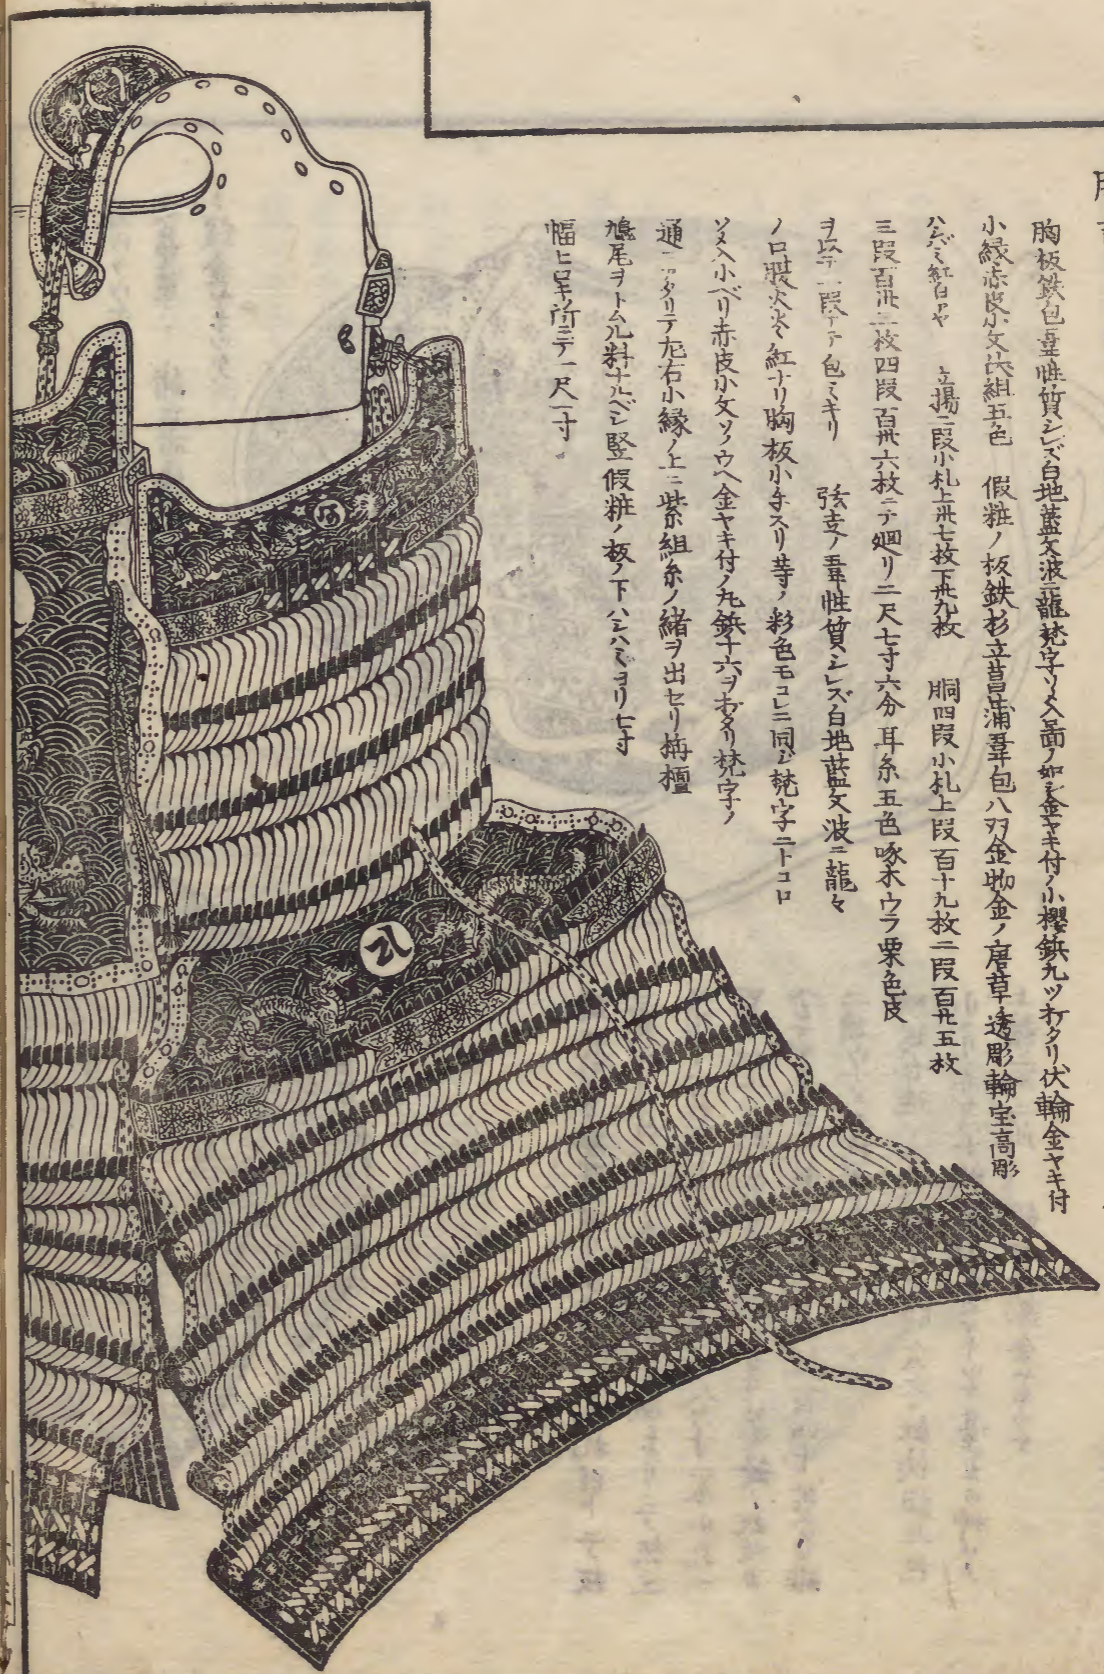 胸板鉄包韋性質シレズ白地藍文波ニ龍梵字ソメ入畵ノ如シ金ヤキ付ノ小櫻鋲九ツオクタリ伏輪金ヤキ付
小縁赤皮小文伏組五色 假粧ノ板鉄杉立菖蒲韋包八双金物金ノ唐草透彫輪宝高彫
ハシバミ紅白アヤ 立揚二段小札上卅七枚下卅九枚 胴四段小札上段百十九枚二段百廿五枚
三段百卅三枚四段百卅六枚ニテ廻リ二尺七寸六分耳糸五色啄木ウラ栗色皮
ヲ以テ一段ヅヽ包ミキリ 弦走ノ韋性質シレズ白地藍文波ニ龍々
ノ口腹火炎紅ナリ胸板小手スリ等ノ彩色モコレニ同ジ梵字ニトコロ
ソメ入小ベリ赤皮小文ソノウヘ金ヤキ付ノ丸鋲十六ヲオクタリ梵字ノ
通ニアタリテ左右小縁ノ上ニ紫組糸ノ緒ヲ出セリ栴檀
鳩尾ヲトムル料ナルベシ竪假粧ノ板ノ下ハシハミヨリ七寸
幅ヒロキ所ニテ一尺一寸